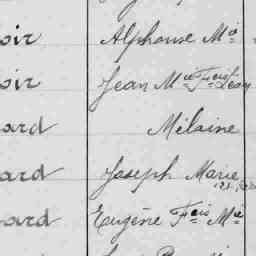 oir Alphonse Mie
oir Jean Mie Fçois Léon
ard Mélaine
ard Joseph Marie
ard Eugène Fçois Mie